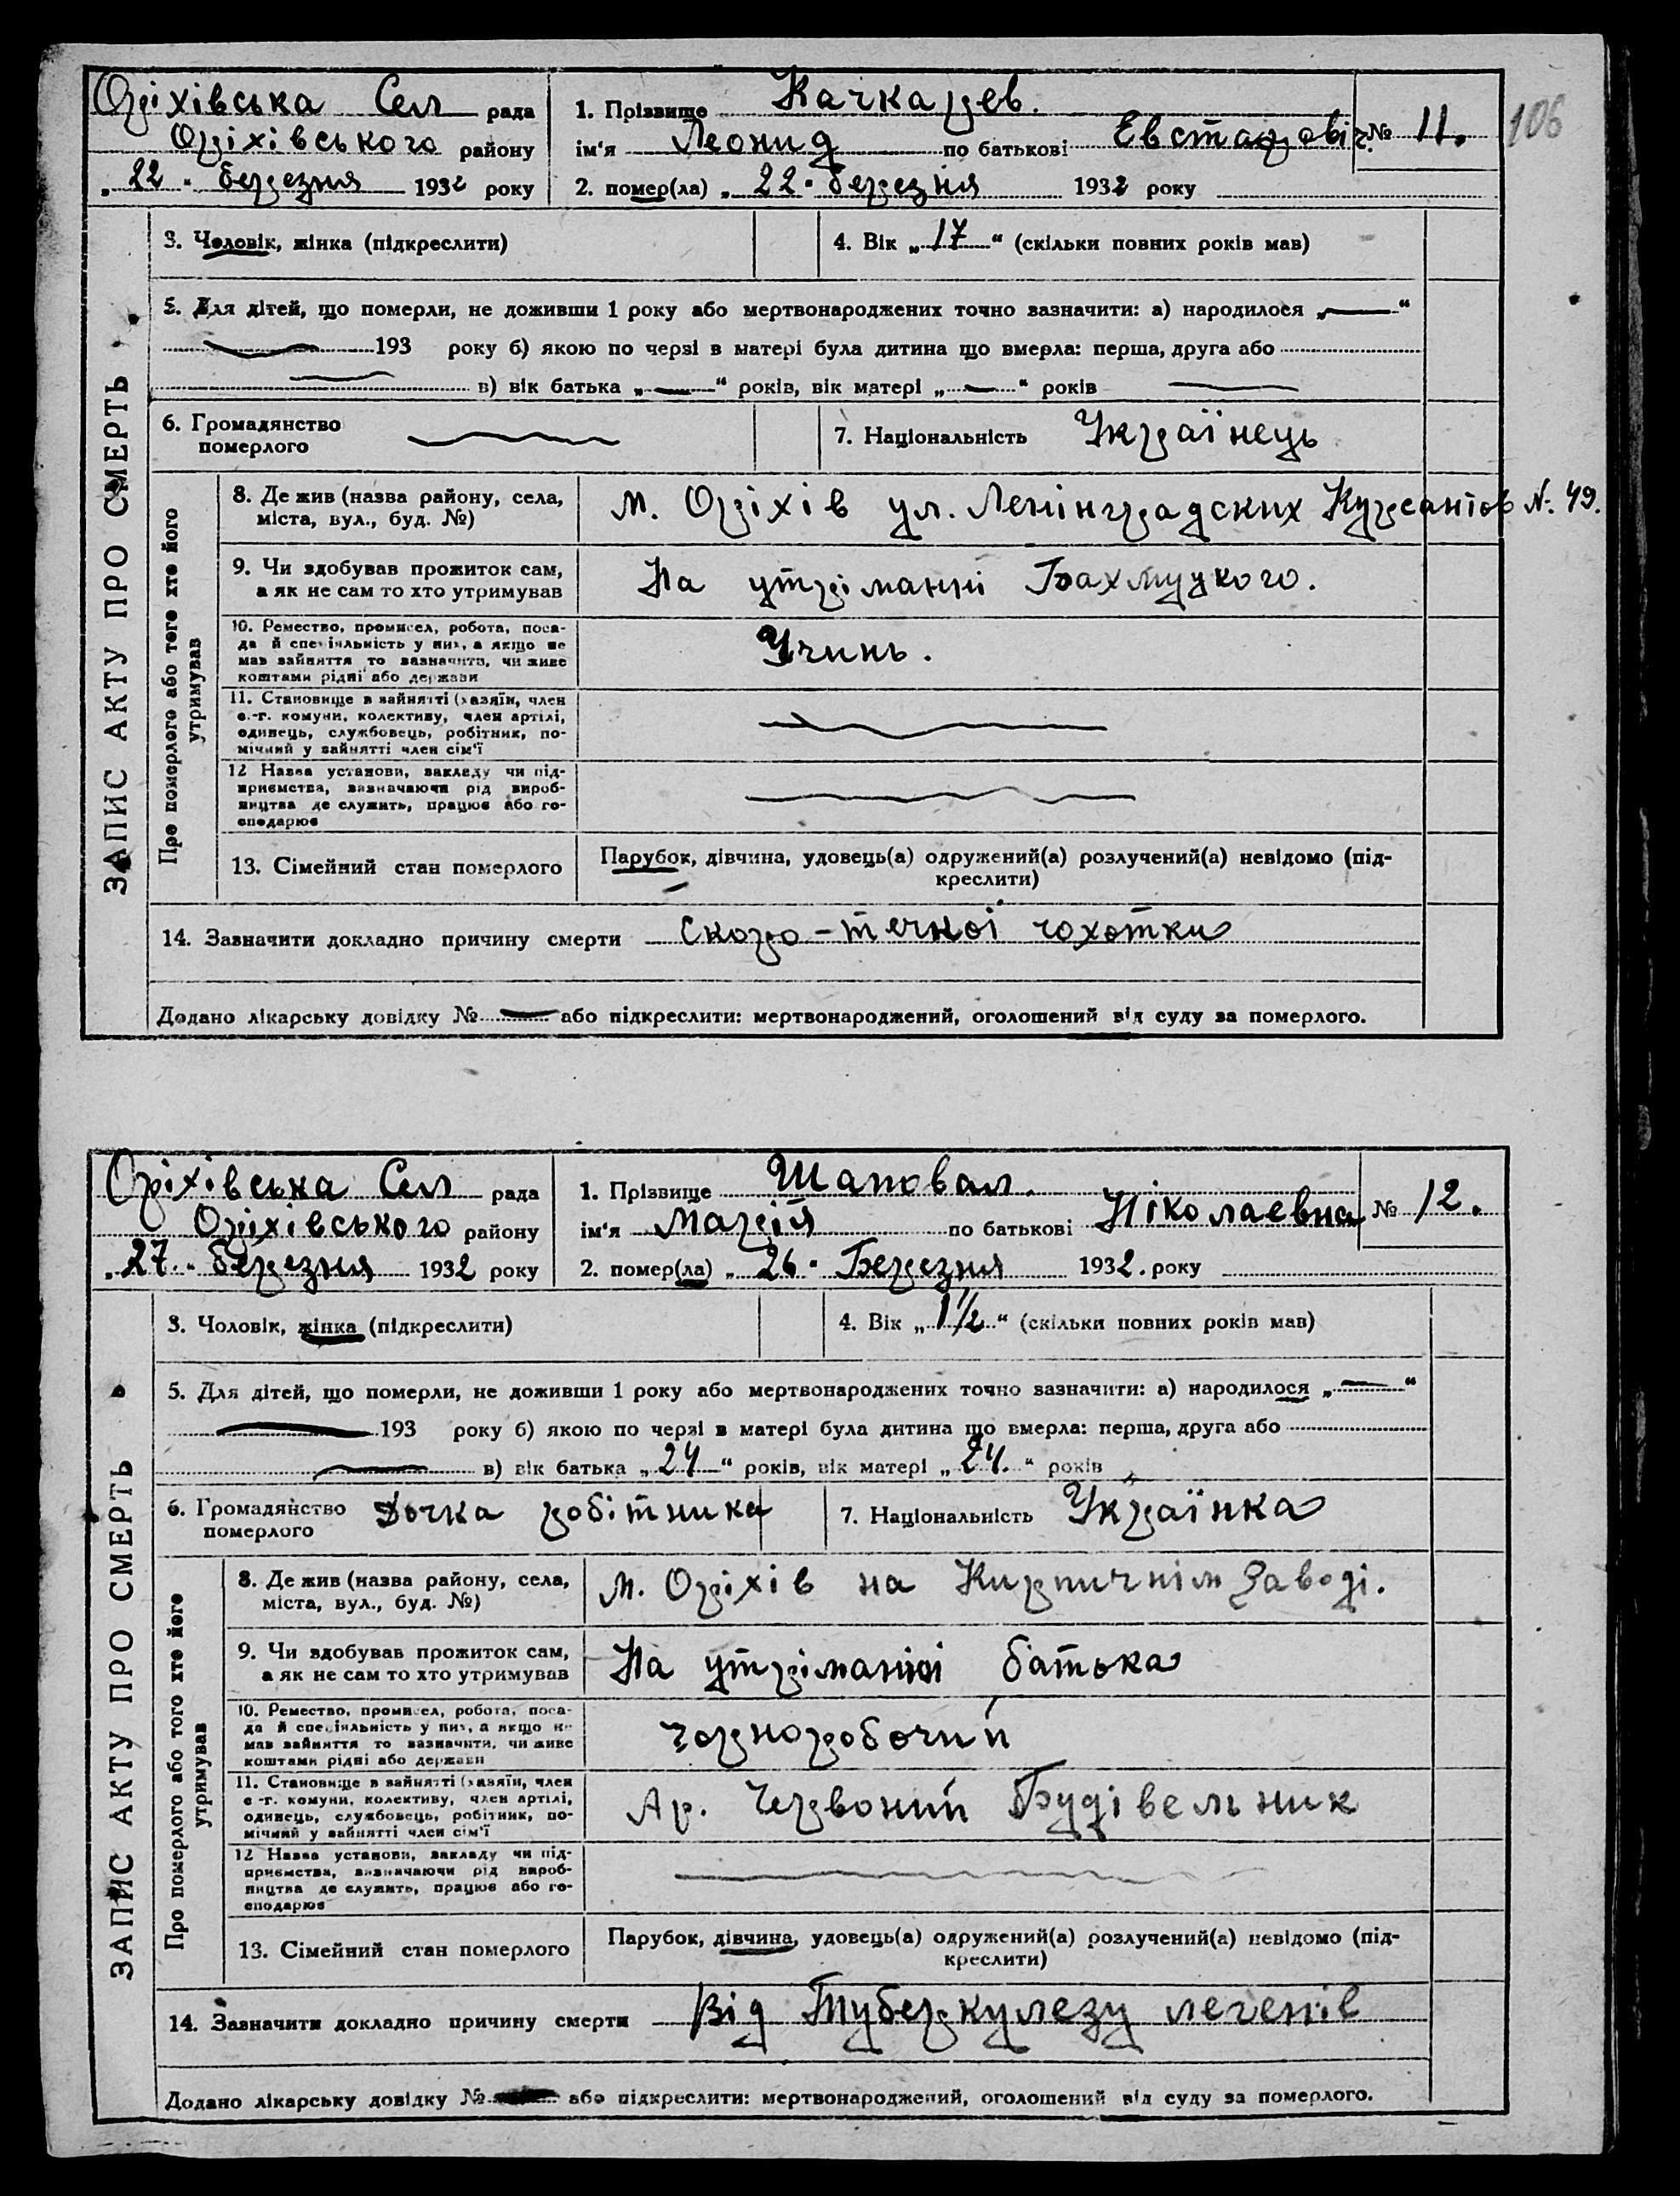 Оріхівська Сел рада
Оріхівського району
„22" березня 1932 року
1. Прізвище Качкарев.
ім'я Леонид по батькові Евстафовіч.
№ 11.
106
2. помер(ла) „22" березня 1932 року
ЗАПИС АКТУ ПРО СМЕРТЬ
3. Чоловік, жінка (підкреслити)
4. Вік „17" (скільки повних років мав)
5. Для дітей, що померли, не доживши 1 року або мертвонароджених точно зазначити: а) народилося „—"
193 року б) якою по черзі в матері була дитина що вмерла: перша, друга або
в) вік батька „—" років, вік матері „—" років
6. Громадянство
померлого
7. Національність Українець
Про померлого або того хто його
утримував
8. Де жив (назва району, села,
міста, вул., буд. №)
м. Оріхів ул. Ленінградских Курсантов №. 49.
9. Чи здобував прожиток сам,
а як не сам то хто утримував
На утріманні Бахмуцкого.
10. Ремество, промисел, робота, поса-
да й спеціяльність у них, а якщо не
мав зайняття то зазначити, чи живе
коштами рідні або держави
Учинь.
11. Становище в зайнятті (хазяїн, член
с.-г. комуни, колективу, член артілі,
одинець, службовець, робітник, по-
мічний у зайнятті член сім'ї
12 Назва установи, закладу чи під-
приємства, зазначаючи рід вироб-
ництва де служить, працює або го-
сподарює
13. Сімейний стан померлого
Парубок, дівчина, удовець(а) одружений(а) розлучений(а) невідомо (під-
креслити)
14. Зазначити докладно причину смерти Скоро-течкої чохотки
Додано лікарську довідку № — або підкреслити: мертвонароджений, оголошений від суду за померлого.
Оріхівська Сел рада
Оріхівського району
„27" березня 1932 року
1. Прізвище Шаповал.
ім'я Марія по батькові Ніколаевна
№ 12.
2. помер(ла) „26" Березня 1932. року
ЗАПИС АКТУ ПРО СМЕРТЬ
3. Чоловік, жінка (підкреслити)
4. Вік „1 1/2" (скільки повних років мав)
5. Для дітей, що померли, не доживши 1 року або мертвонароджених точно зазначити: а) народилося „—"
193 року б) якою по черзі в матері була дитина що вмерла: перша, друга або
в) вік батька „24" років, вік матері „24." років
6. Громадянство
померлого
Дочка робітника
7. Національність Українка
Про померлого або того хто його
утримував
8. Де жив (назва району, села,
міста, вул., буд. №)
м. Оріхів на Кирпичнім Заводі.
9. Чи здобував прожиток сам,
а як не сам то хто утримував
На утріманні батька
10. Ремество, промисел, робота, поса-
да й спеціяльність у них, а якщо не
мав зайняття то зазначити, чи живе
коштами рідні або держави
Чорноробочий
11. Становище в зайнятті (хазяїн, член
с.-г. комуни, колективу, член артілі,
одинець, службовець, робітник, по-
мічний у зайнятті член сім'ї
Ар. Червоний Будівельник
12 Назва установи, закладу чи під-
приємства, зазначаючи рід вироб-
ництва де служить, працює або го-
сподарює
13. Сімейний стан померлого
Парубок, дівчина, удовець(а) одружений(а) розлучений(а) невідомо (під-
креслити)
14. Зазначити докладно причину смерти Від Туберкулезу легенів
Додано лікарську довідку № або підкреслити: мертвонароджений, оголошений від суду за померлого.